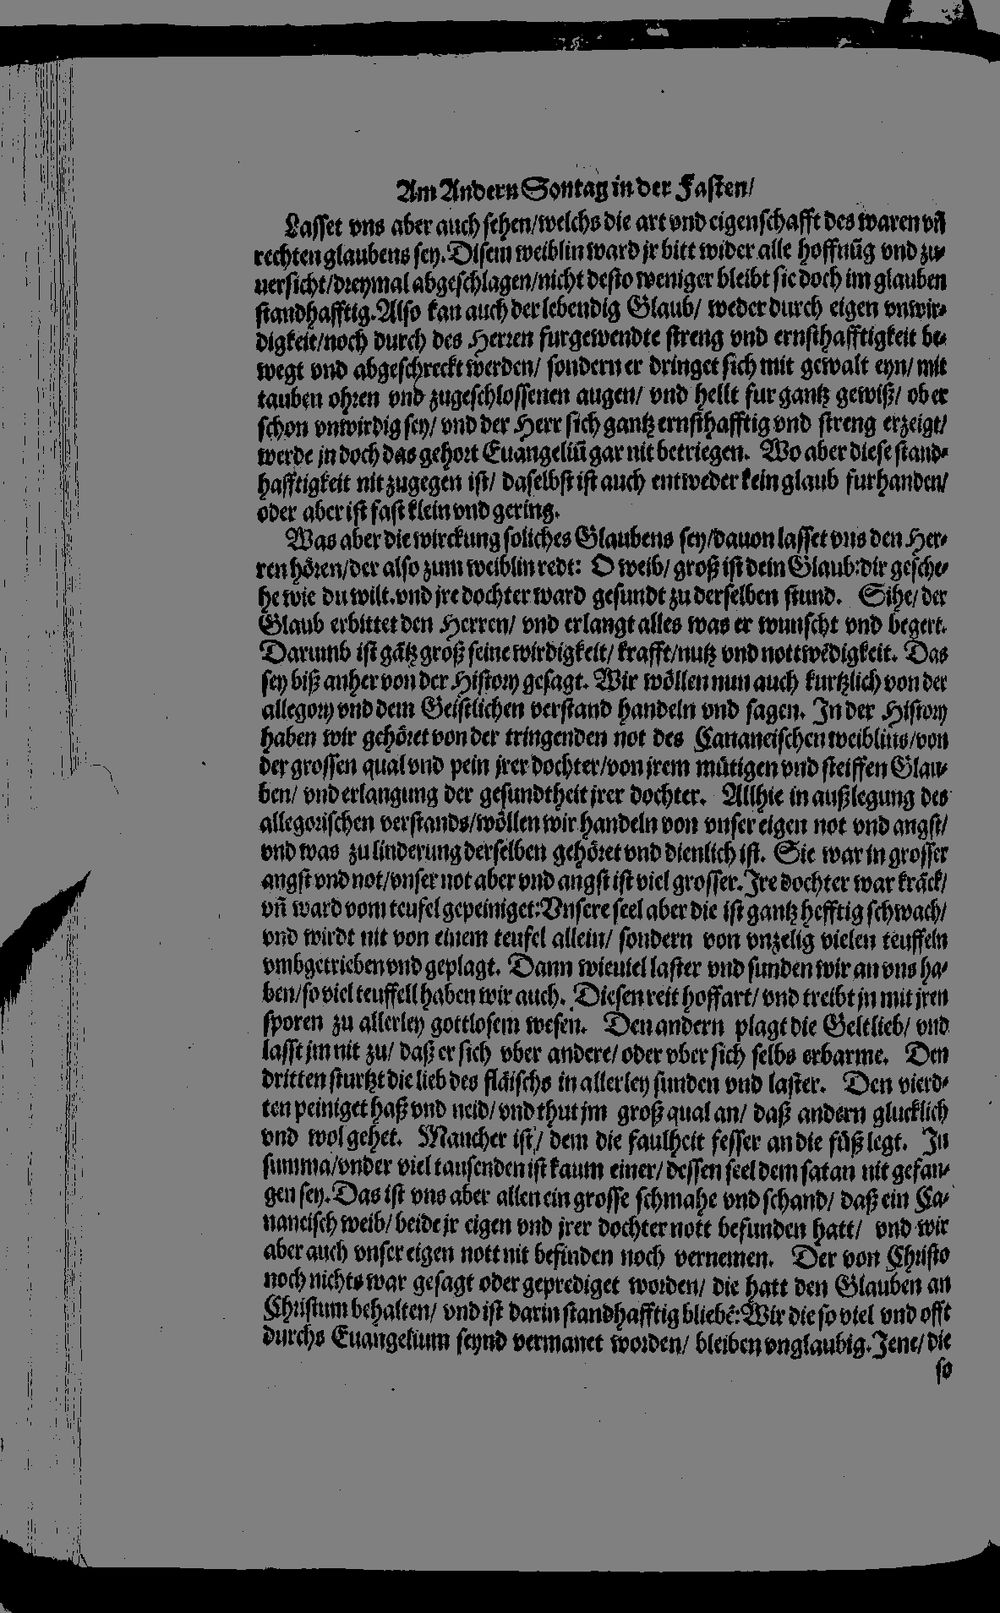 Am Andern Sontag in der Fasten/
Lasset vns aber auch sehen/welchs die art vnd eigenschafft des waren vñ
rechten glaubens sey. Disem weiblin ward jr bitt wider alle hoffnũg vnd zu-
uersicht/dreymal abgeschlagen/nicht desto weniger bleibt sie doch im glauben
standhafftig. Also kan auch der lebendig Glaub/ weder durch eigen vnwir-
digkeit/noch durch des Herren furgewendte streng vnd ernsthafftigkeit be-
wegt vnd abgeschreckt werden/ sondern er dringet sich mit gewalt eyn/ mit
tauben ohren vnd zugeschlossenen augen/ vnd hellt fur gantz gewiß/ ob er
schon vnwirdig sey/ vnd der Herr sich gantz ernsthafftig vnd streng erzeigt/
werde jn doch das gehort Euangeliũ gar nit betriegen. Wo aber diese stand-
hafftigkeit nit zugegen ist/ daselbst ist auch entweder kein glaub furhanden/
oder aber ist fast klein vnd gering.
Was aber die wirckung soliches Glaubens sey/dauon lasset vns den Her-
ren hören/der also zum weiblin redt: O weib/ groß ist dein Glaub:dir gesche-
he wie du wilt.vnd jre dochter ward gesundt zu derselben stund. Sihe/ der
Glaub erbittet den Herren/ vnd erlangt alles was er wunscht vnd begert.
Darumb ist gãtz groß seine wirdigkeit/ krafft/nutz vnd nottwẽdigkeit. Das
sey biß anher von der History gesagt. Wir wöllen nun auch kurtzlich von der
allegory vnd dem Geistlichen verstand handeln vnd sagen. In der History
haben wir gehöret von der tringenden not des Cananeischen weiblins/von
der grossen qual vnd pein jrer dochter/von jrem mütigen vnd steiffen Glau-
ben/ vnd erlangung der gesundtheit jrer dochter. Allhie in außlegung des
allegorischen verstands/wöllen wir handeln von vnser eigen not vnd angst/
vnd was zu linderung derselben gehöret vnd dienlich ist. Sie war in grosser
angst vnd not/vnser not aber vnd angst ist viel grosser. Jre dochter war krãck/
vñ ward vom teufel gepeiniget:Vnsere seel aber die ist gantz hefftig schwach/
vnd wirdt nit von einem teufel allein/ sondern von vnzelig vielen teuffeln
vmbgetrieben vnd geplagt. Dann wieuiel laster vnd sunden wir an vns ha-
ben/so viel teuffell haben wir auch. Diesen reit hoffart/ vnd treibt jn mit jren
sporen zu allerley gottlosem wesen. Den andern plagt die Geltlieb/ vnd
lasst jm nit zu/ daß er sich vber andere/ oder vber sich selbs erbarme. Den
dritten sturtzt die lieb des fläischs in allerley sunden vnd laster. Den vierd-
ten peiniget haß vnd neid/ vnd thut jm groß qual an/ daß andern glucklich
vnd wol gehet. Mancher ist/ dem die faulheit fesser an die füß legt. In
summa/vnder viel tausenden ist kaum einer/ dessen seel dem satan nit gefan-
gen sey. Das ist vns aber allen ein grosse schmahe vnd schand/ daß ein Ca-
naneisch weib/ beide jr eigen vnd jrer dochter nott befunden hatt/ vnd wir
aber auch vnser eigen nott nit befinden noch vernemen. Der von Christo
noch nichts war gesagt oder geprediget worden/ die hatt den Glauben an
Christum behalten/ vnd ist darin standhafftig bliebẽ:Wir die so viel vnd offt
durchs Euangelium seynd vermanet worden/ bleiben vnglaubig. Jene/ die
so